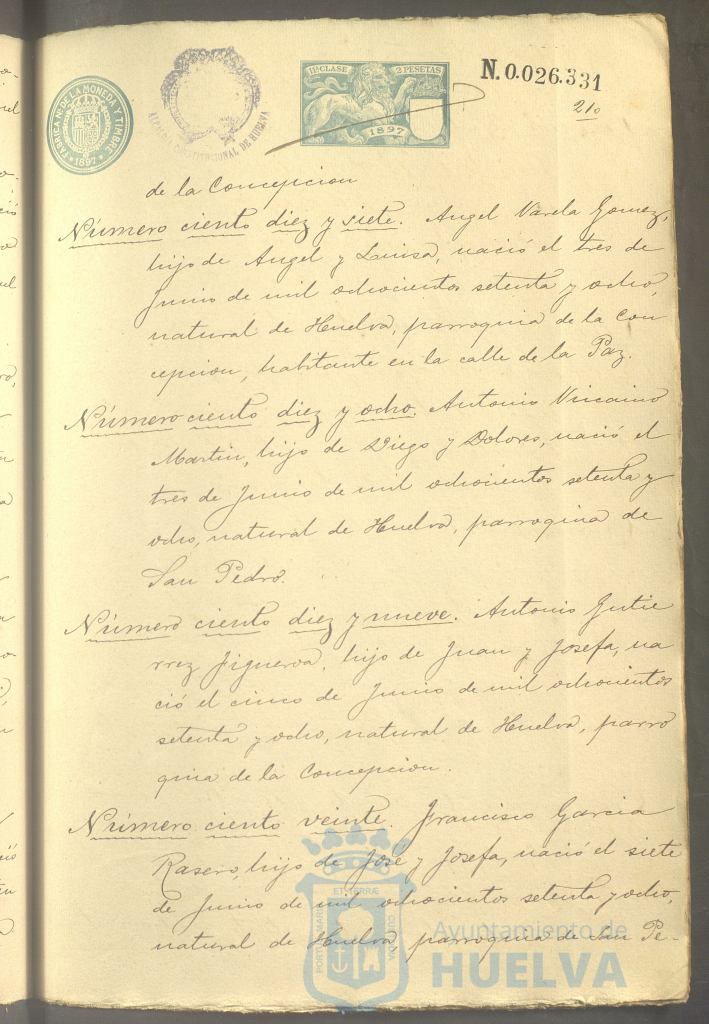 FABRICA Nl. DE LA MONEDA Y TIMBRE
1897
ALCALDIA CONSTITUCIONAL DE HUELVA
11ª CLASE 2 PESETAS
1897
N.0.026.331
210
de la Concepcion
Número ciento diez y siete. Angel Varela Gomez,
hijo de Angel y Luisa, nació el tres de
Junio de mil ochocientos setenta y ocho,
natural de Huelva, parroquia de la Con
cepcion, habitante en la calle de la Paz.
Número ciento diez y ocho. Antonio Vizcaino
Martin, hijo de Diego y Dolores, nació el
tres de Junio de mil ochocientos setenta y
ocho, natural de Huelva, parroquia de
San Pedro.
Número ciento diez y nueve. Antonio Gutie
rrez Figueroa, hijo de Juan y Josefa, na
ció el cinco de Junio de mil ochocientos
setenta y ocho, natural de Huelva, parro
quia de la Concepcion.
Número ciento veinte. Francisco Garcia
Rasero, hijo de José y Josefa, nació el siete
de Junio de mil ochocientos setenta y ocho,
natural de Huelva, parroquia de San Pe-
PORTUS MARIS ET TERRÆ CUSTODIA
Ayuntamiento de
HUELVA